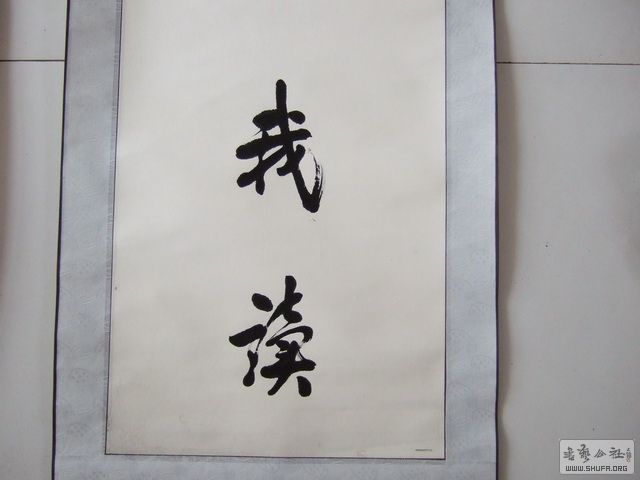 我
讀
书艺公社
WWW.SHUFA.ORG